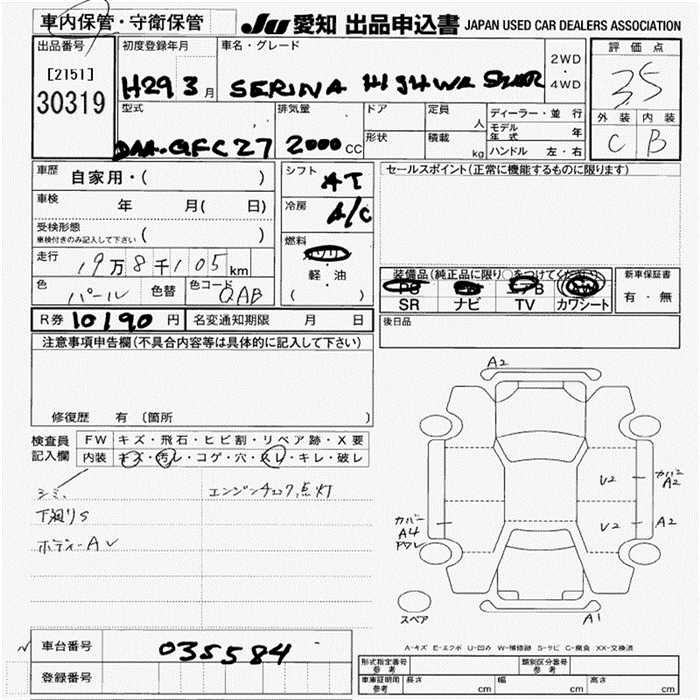 車内保管・守衛保管
JU 愛知 出品申込書 JAPAN USED CAR DEALERS ASSOCIATION
出品番号
[2151]
30319
初度登録年月
H29 3月
車名・グレード
SERINA HIGHWA STAR
2WD
・
4WD
評価点
3.5
外装 内装
C B
型式
DAA-GFC27
排気量
2000CC
ドア
形状
定員
人
積載
kg
ディーラー・並行
モデル年式 年
ハンドル 左・右
車歴 自家用・( )
車検 年 月( 日)
受検形態
車検付きのみ記入して下さい ( )
走行 19万8千105km
色 パール 色替 色コード QAB
シフト AT
冷房 A/C
燃料 ガソリン
軽・油
( )
セールスポイント(正常に機能するものに限ります)
装備品(純正品に限り○をつけてください)
PS PW エアB AW
SR ナビ TV カワシート
新車保証書
有・無
R券 10190円 名変通知期限 月 日
後日品
注意事項申告欄(不具合内容等は具体的に記入して下さい)
修復歴 有 (箇所 )
検査員記入欄
FW キズ・飛石・ヒビ割・リペア跡・X要
内装 キズ・汚レ・コゲ・穴・スレ・キレ・破レ
シミ、
エンジンチェック点灯
下廻りS
ボディーAU
A2
U2
カバー
A2
U2
A2
カバー
A4
ワレ
スペア
A1
A-キズ E-エクボ U-凹み W-補修跡 S-サビ C-腐食 XX-交換済
車台番号 035584
登録番号
型式指定番号 参考
類別区分番号 参考
車庫証明用 参考
長さ cm 幅 cm 高さ cm